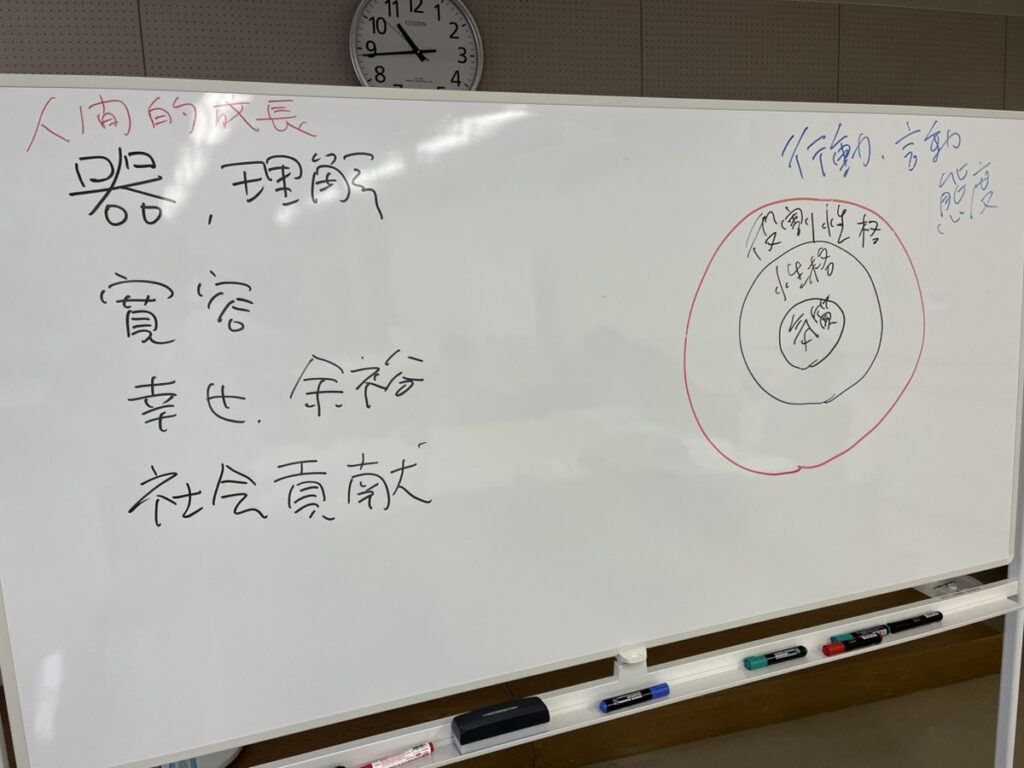 11 12 1
10 CITIZEN 2
9 3
8 4
人間的成長
器, 理解
寛容
幸せ. 余裕
社会貢献
行動. 言動
態度
役割性格
性格